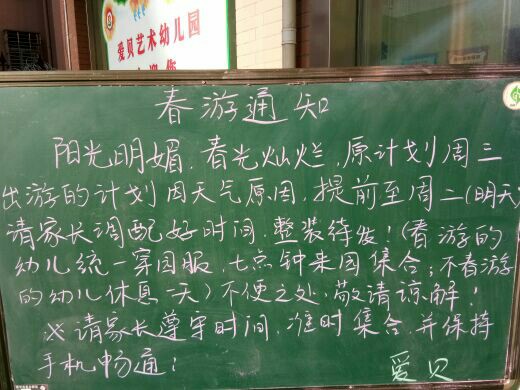 爱贝艺术幼儿园
春游通知
阳光明媚,春光灿烂,原计划周三
出游的计划因天气原因,提前至周二(明天)
请家长调配好时间,整装待发!(春游的
幼儿统一穿园服,七点钟来园集合;不春游
的幼儿休息一天)不便之处,敬请谅解!
※请家长遵守时间,准时集合,并保持
手机畅通;
爱贝